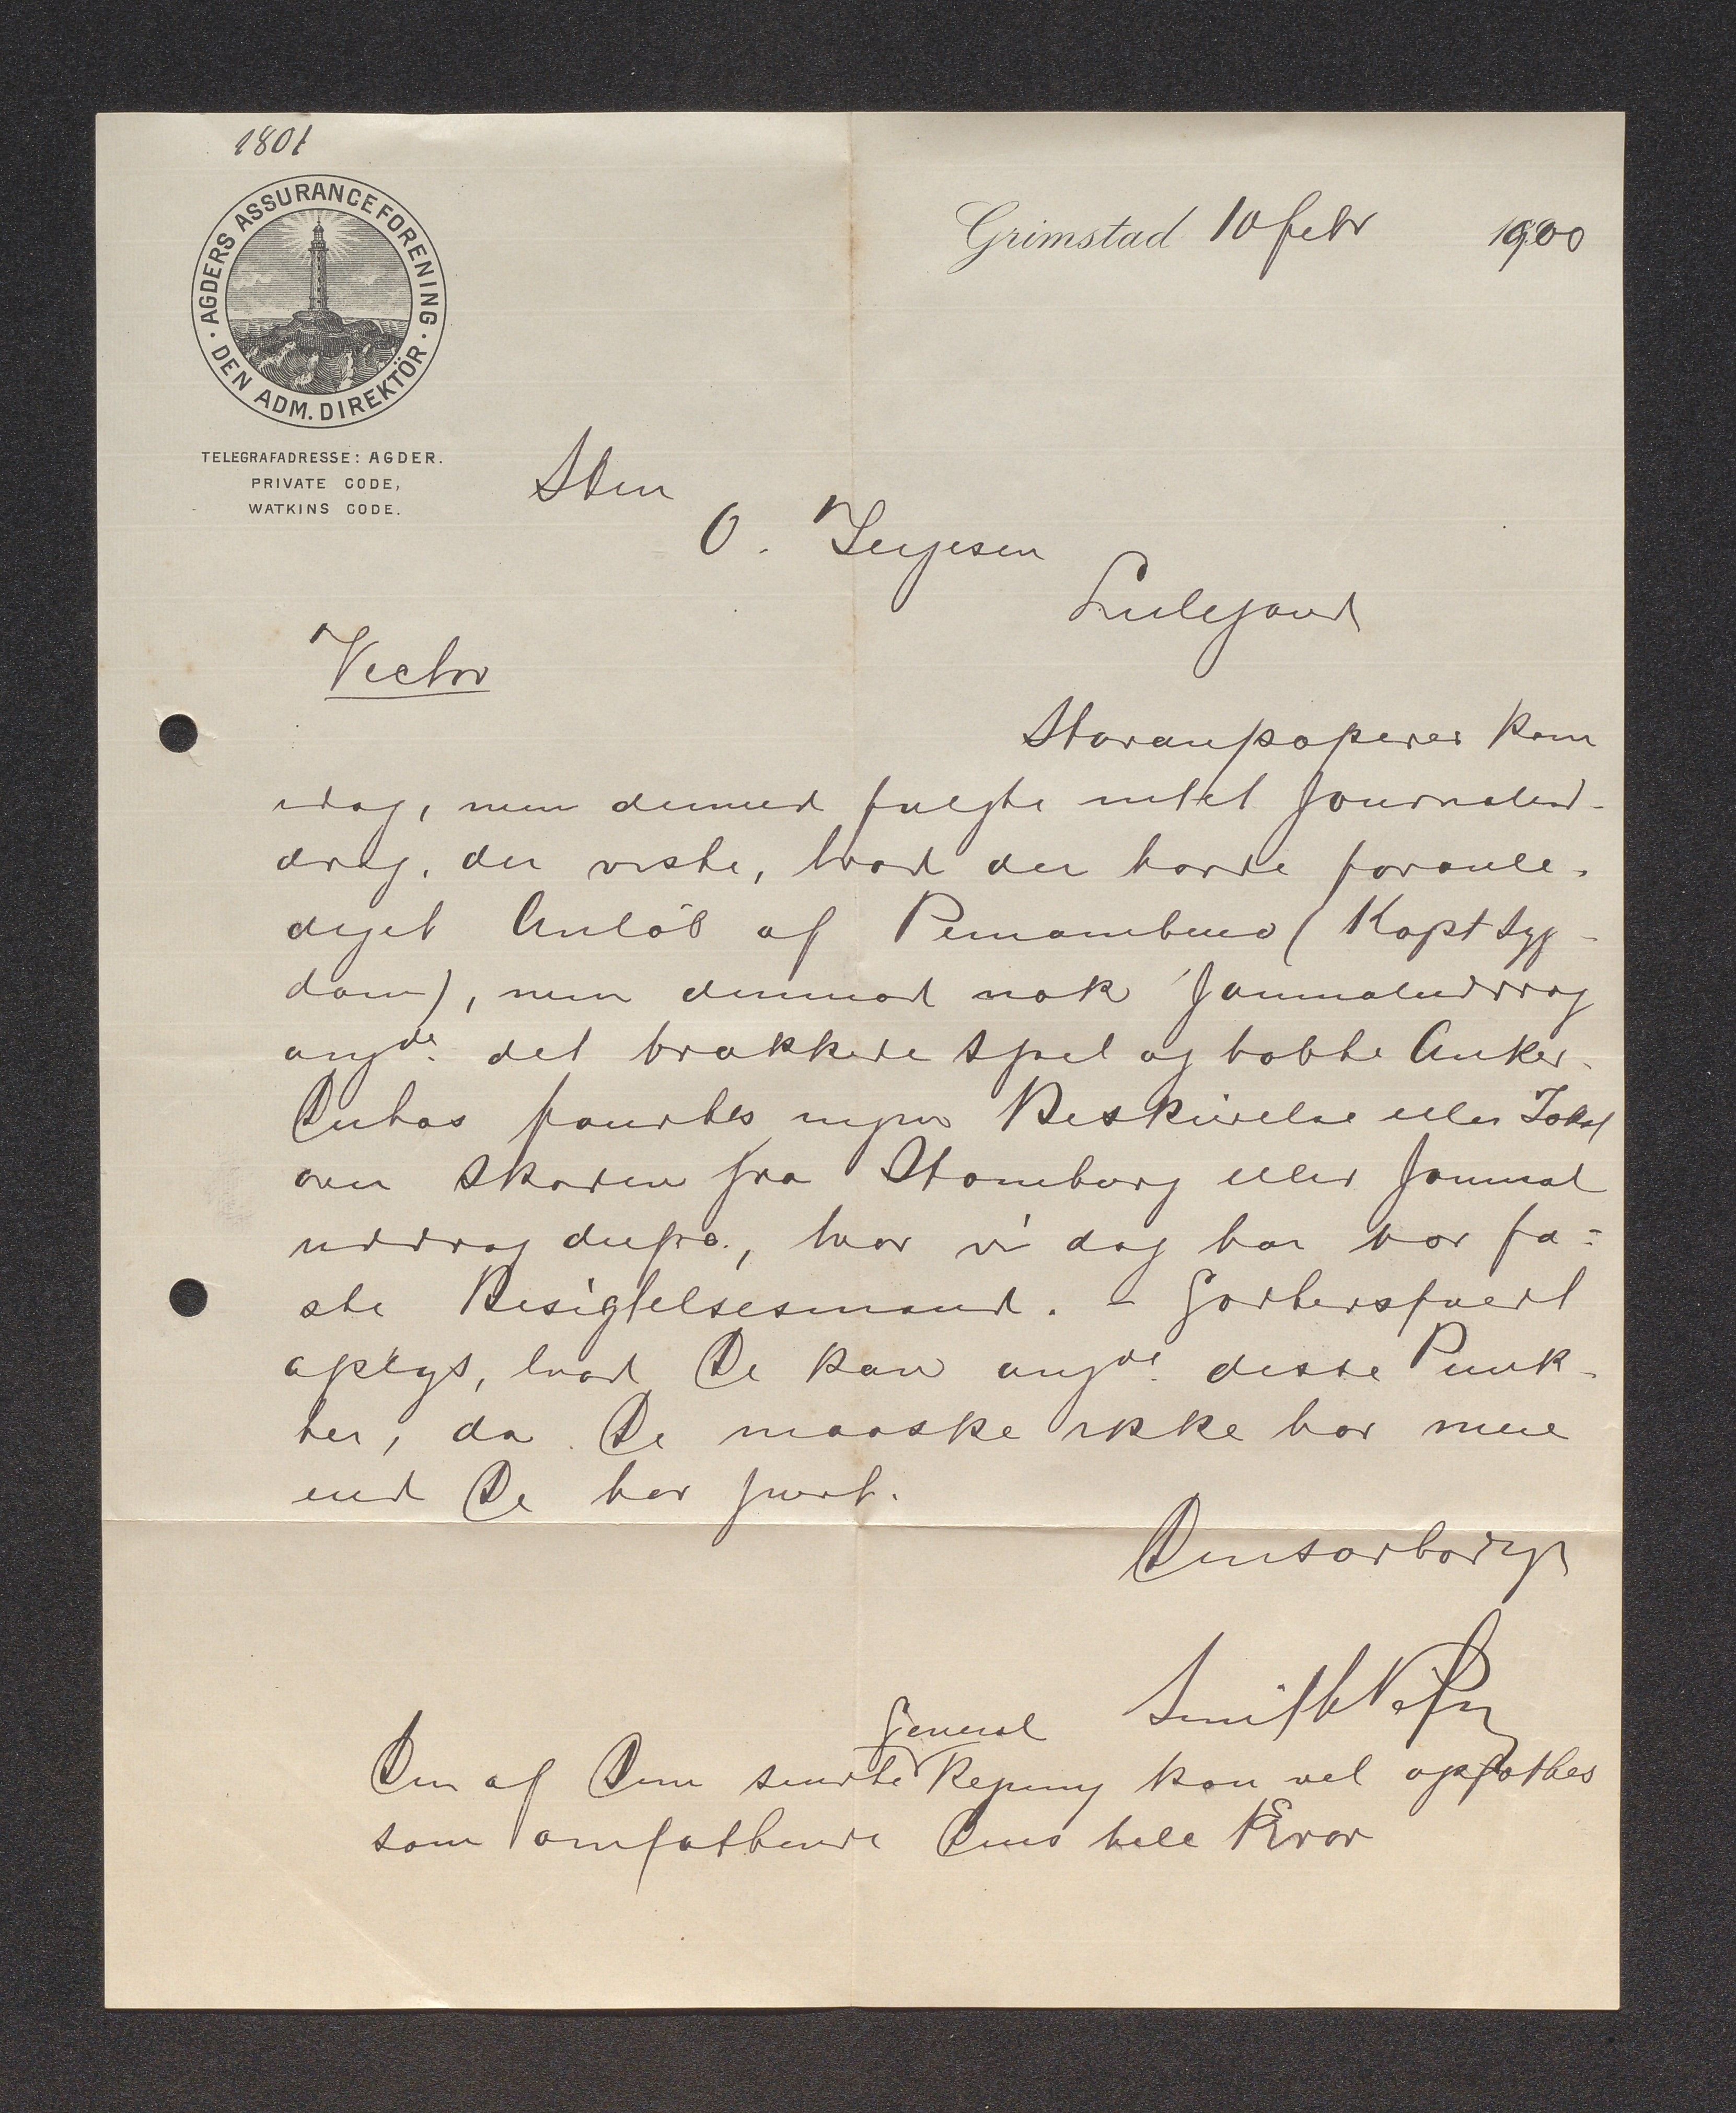 1801
AGDERS ASSURANCEFORENING
DEN ADM. DIREKTÖR
TELEGRAFADRESSE: AGDER.
PRIVATE CODE,
WATKINS CODE.
Grimstad 10 febr 1900
Hrn
O. Terjesen
Lillesand
Vector
Havaripapirer kom
idag, men dermed fulgte intet Journalud-
drag, der viste, hvad der havde foranle-
diget Anløb af Pernambuco (Kapt Syg-
dom), men derimod nok Journaluddrag
angde det brækkede Spel og tabte Anker.
Dertas fandtes ingen Beskrivelse eller
over Skaden fra Hamburg eller Journal
uddrag derfra, hvor vi dog har vor fa-
ste Besigtelsesmand. – Godhedsfuldt
oplys, hvad De kan angde disse Punk-
ter, da De maaske ikke har mere
end De har sendt.
Deres ærbødige
Smith Petersen
Den af Dem sendte General Regning kan vel opfattes
som omfattende Deres hele Krav